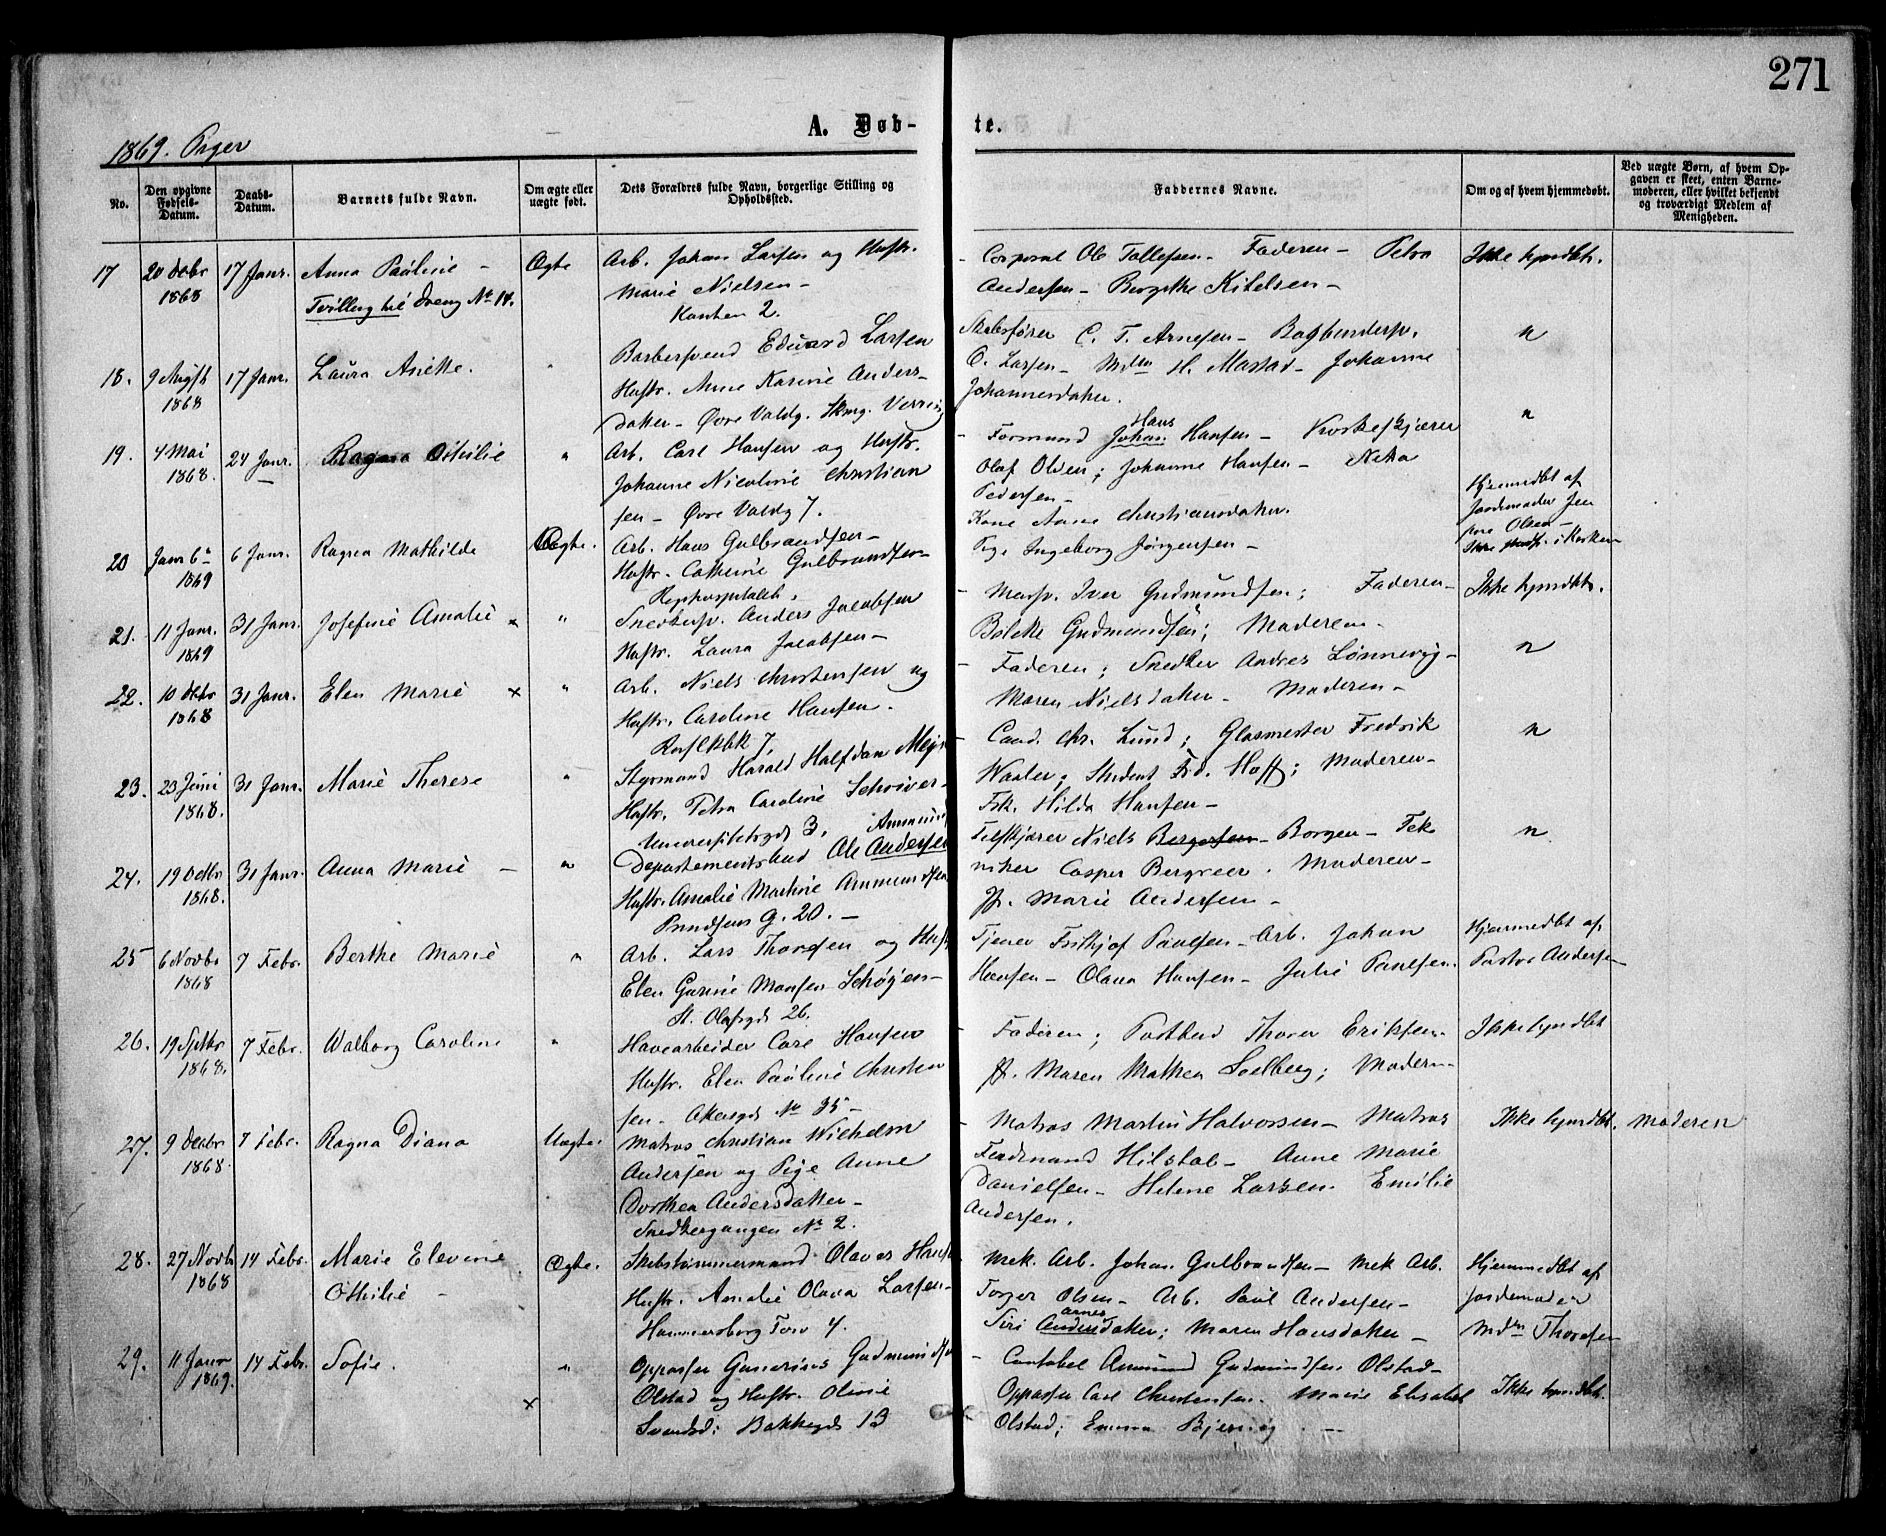 271
A. Døb-te.
1869. Piger
No.
Den opgivne Fødsels-Datum.
Daabs-Datum.
Barnets fulde Navn.
Om ægte eller uægte født.
Dets Forældres fulde Navn, borgerlige Stilling og Opholdssted.
Faddernes Navne.
Om og af hvem hjemmedøbt.
Ved uægte Børn, af hvem Opgaven er skeet, enten Barnemoderen, eller hvilket bekjendt og troværdigt Medlem af Menigheden.
17 20 Decbr 1868 17 Janr. Anna Pauline - Ægte Arb. Johan Larsen og Hustr. Corporal Ole Tollefsen - Faderen - Petra Ikke hjmdbt.
Tvilling til Dreng No 14. Marie Nielsen - Andersen - Birgitte Kittelsen -
2.
18. 9 Augst 1868 17 Janr. Laura Anette. " Eduard Larsen C. T. Arnesen - Bogbindersv. "
Hustr. Anne Karine Anders- O. Larsen - H. Mastad - Johanne
datter - Øvre Voldg. Johannesdatter.
19. 4 Mai 1868. 24 Janr. Ragna Othilie " Arb. Carl Hansen og Hustr. Formand Johan Hans Hansen - "
Johanne Nicoline Christian Olaf Olsen; Johanne Hansen -
sen - Øvre Voldg 7. Pedersen -
20 Janr 6te 1869 6 Janr. Ragna Mathilde Uægte. Arb. Hans Gulbrandsen - Kone Anne Christiansdatter. Hjemmedbt af Jordemoder
Hustr. Cathrine Gulbrandsen - Pige Ingeborg Jørgensen - Olsen -
21. 11 Janr. 1869 31 Janr. Josefine Amalie x " Snedkersv. Anders Jacobsen Iver Gudmundsen; Faderen - Ikke hjmdbt.
Hustr. Laura Jacobsen - Gudmundsen; Moderen -
22. 10 Decbr 1868 31 Janr. Elen Marie x " Arb. Niels Christensen og Faderen; Snedker Andres Lønnevig - "
Hustr. Caroline Hansen. Maren Nielsdatter - Moderen -
7.
23. 23 Juni 1868. 31 Janr. Marie Therese " Styrmand Harald Halfdan Cand. Chr. Lund; Glasmester Fredrik "
Hustr. Petra Caroline Schriver - Waaler; Student Fr. Hoff; Moderen -
Universitetsgd 3. Frk. Hilda Hansen -
24. 19 Octbr 1868. 31 Janr. Anna Marie - " Departementsbud Ole Andersen Niels Bergersen - Borgen - Tek "
Hustr. Amalie Martine Ammundsen niker Casper Moderen -
g. 20. - Jfr. Marie Andersen -
25 6 Novbr 1868 7 Febr. Berthe Marie " Arb. Lars Thoresen og Hustr Tjener Frithjof Paulsen - Arb. Johan Hjemmedbt af
Elen Gurine Monsen Hansen - Olava Hansen - Julie Paulsen. Pastor Andersen
St. Olafsgd 26.
26. 19 Septbr 1868. 7 Febr. Walborg Caroline " Havearbeider Carl Hansen - Faderen; Postbud Thorer Eriksen. Ikke hjmdbt
Hustr. Elen Pauline Christen Jfr. Maren Mathea Solberg; Modern -
sen. Akersgd No 35 -
27. 9 Decbr 1868. 7 Febr. Ragna Diana Uægte. Matros Christian Wilhelm - Matros Martin Halvorsen - Matros Ikke hjmdbt. Moderen
Andersen og Pige Anne Ferdinand Hilstab - Anne Marie
Dorthea Andersdatter - Danielsen - Helene Larsen. Emilie
Snedkergangen No 2. Andersen.
28. 27 Novbr 1868 14 Febr. Marie Elevine Ægte. Skibstømmermand Olaves Hans Mek. Arb. Johan Gulbrandsen - Mek Arb. Hjemmedbt af
Othilie - Hustr. Amalie Olava Larsen - Torger Olsen - Arb. Paul Andersen - Jordemoder
Hammersborg Torv 4. Siri Andersdatter; Maren Hansdatter - Mdm Thoresen
29. 11 Janr 1869. 14 Febr. Sofie. " x Oppasser Gunerius Gudmundsen - Amund Gudmundsen Olstad -
Olstad og Hustr. Oline Oppasser Carl Christensen. Marie Elisabet Ikke hjmdbt.
Svendsd: Bakkegd 13 Olstad; Emma